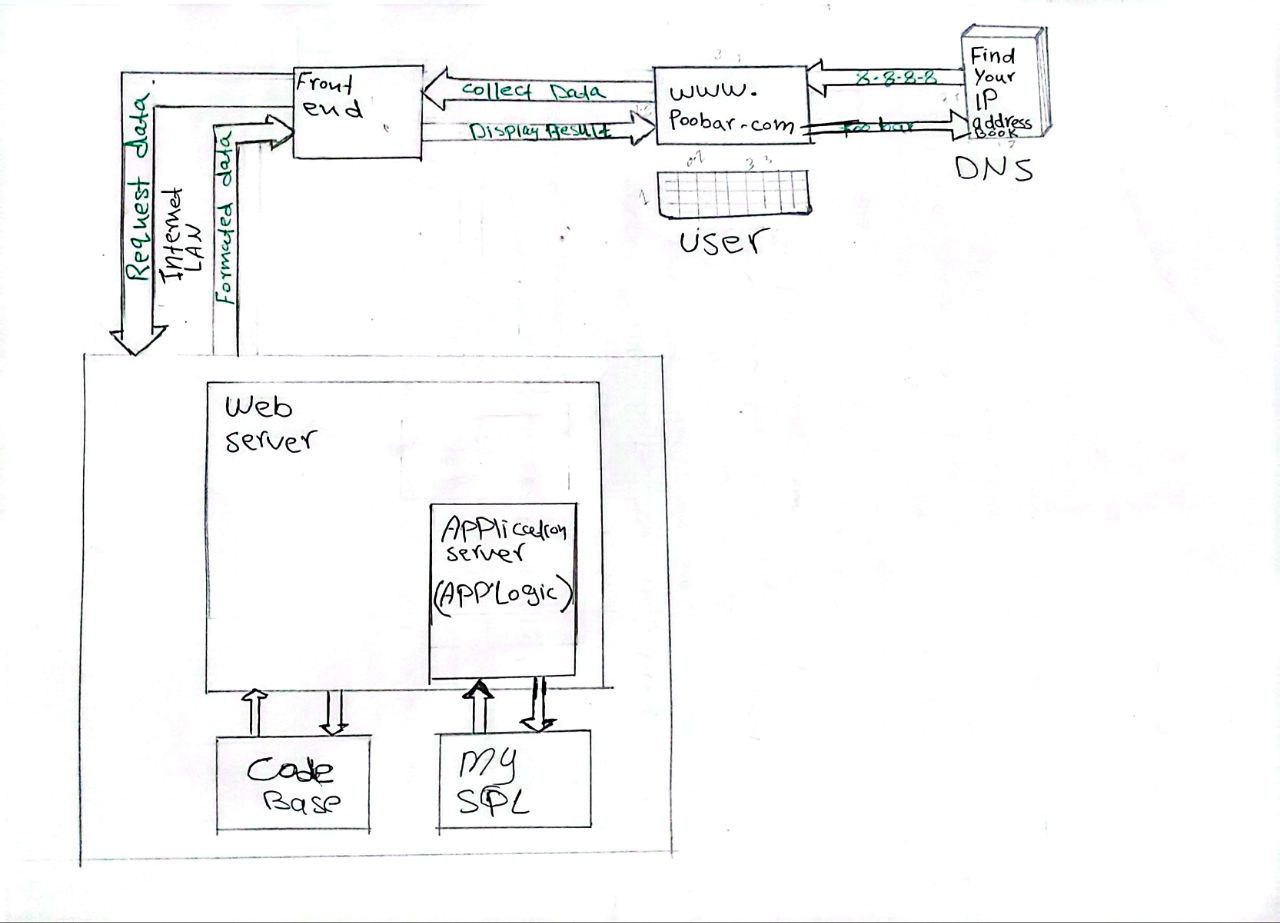 Front
end
collect Data
Display Result
www.
Foobar.com
8.8.8.8
foo bar
Find
Your
IP
address
Book
DNS
user
Request data
Internet
LAN
Formated data
Web
server
Application
server
(APP Logic)
Code
Base
My
SQL